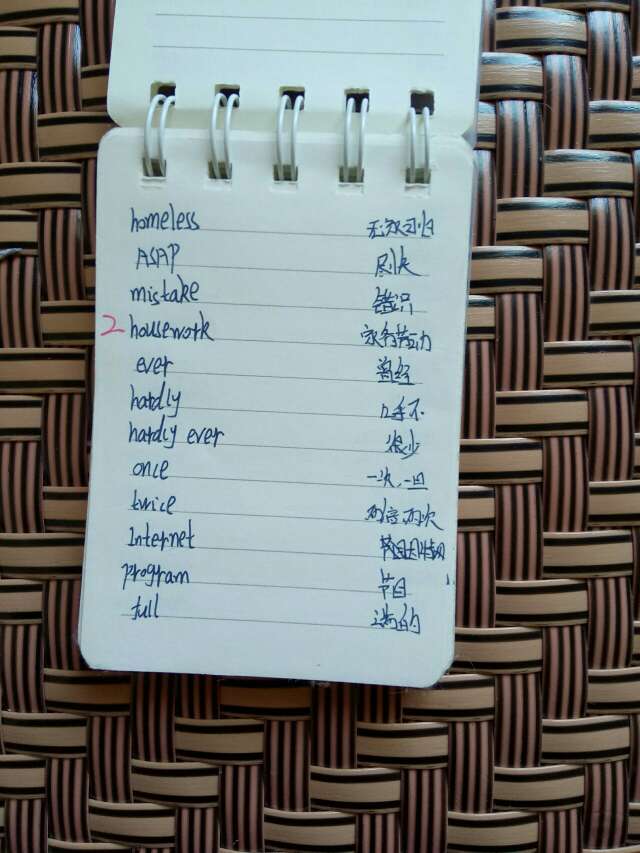 homeless 无家可归
ASAP 尽快
mistake 错识
2 housework 家务劳动
ever 曾经
hardly 几乎不
hardly ever 很少
once 一次,一旦
twice 两倍,两次
Internet 因特网
program 节目
full 满的